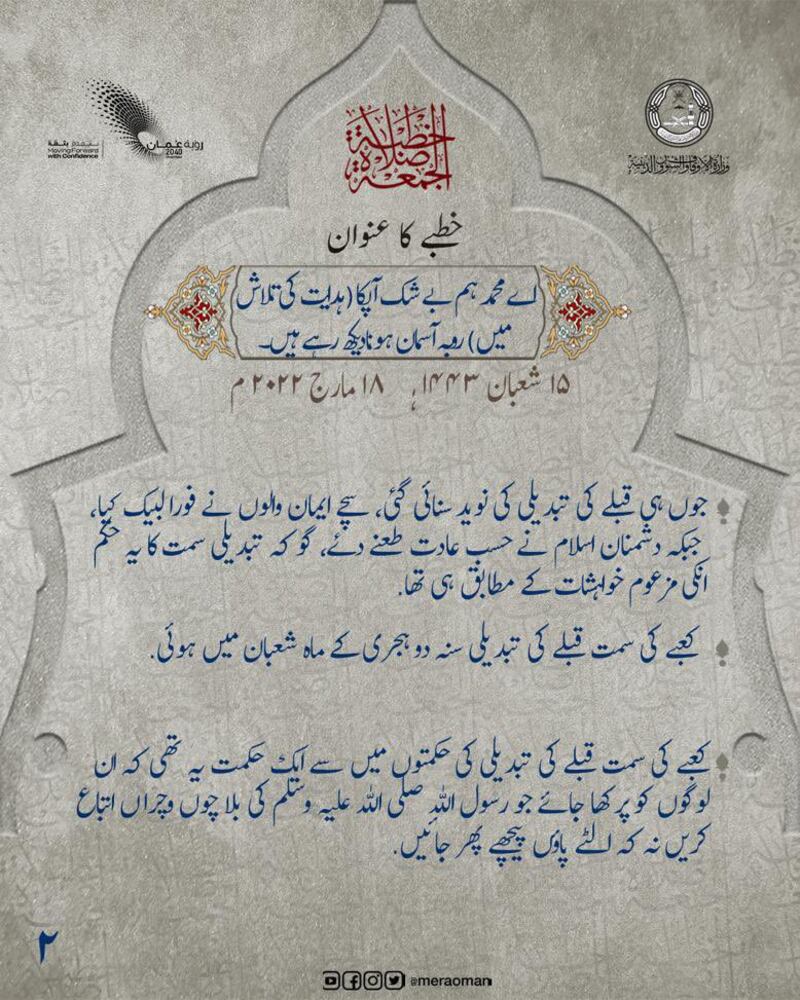 رؤية عُمان
2040
نتقدم بثقة
Moving Forward
with Confidence
وزارة الأوقاف والشؤون الدينية
خطبة
صلاة
الجمعة
خطبے کا عنوان
اے محمد ہم بے شک آپکا (ہدایت کی تلاش
میں) روبہ آسمان ہونا دیکھ رہے ہیں۔
۱۵ شعبان ۱۴۴۳ ہ، ۱۸ مارچ ۲۰۲۲ م
جوں ہی قبلے کی تبدیلی کی نوید سنائی گئی، سچے ایمان والوں نے فورا لبیک کہا،
جبکہ دشمنان اسلام نے حسب عادت طعنے دئے، گو کہ تبدیلی سمت کا یہ حکم
انکی مزعوم خواہشات کے مطابق ہی تھا.
کعبے کی سمت قبلے کی تبدیلی سنہ دو ہجری کے ماہ شعبان میں ہوئی.
کعبے کی سمت قبلے کی تبدیلی کی حکمتوں میں سے ایک حکمت یہ تھی کہ ان
لوگوں کو پرکھا جائے جو رسول اللہ صلی اللہ علیہ وسلم کی بلا چوں وچراں اتباع
کریں نہ کہ الٹے پاؤں پیچھے پھر جائیں.
۲
@meraoman